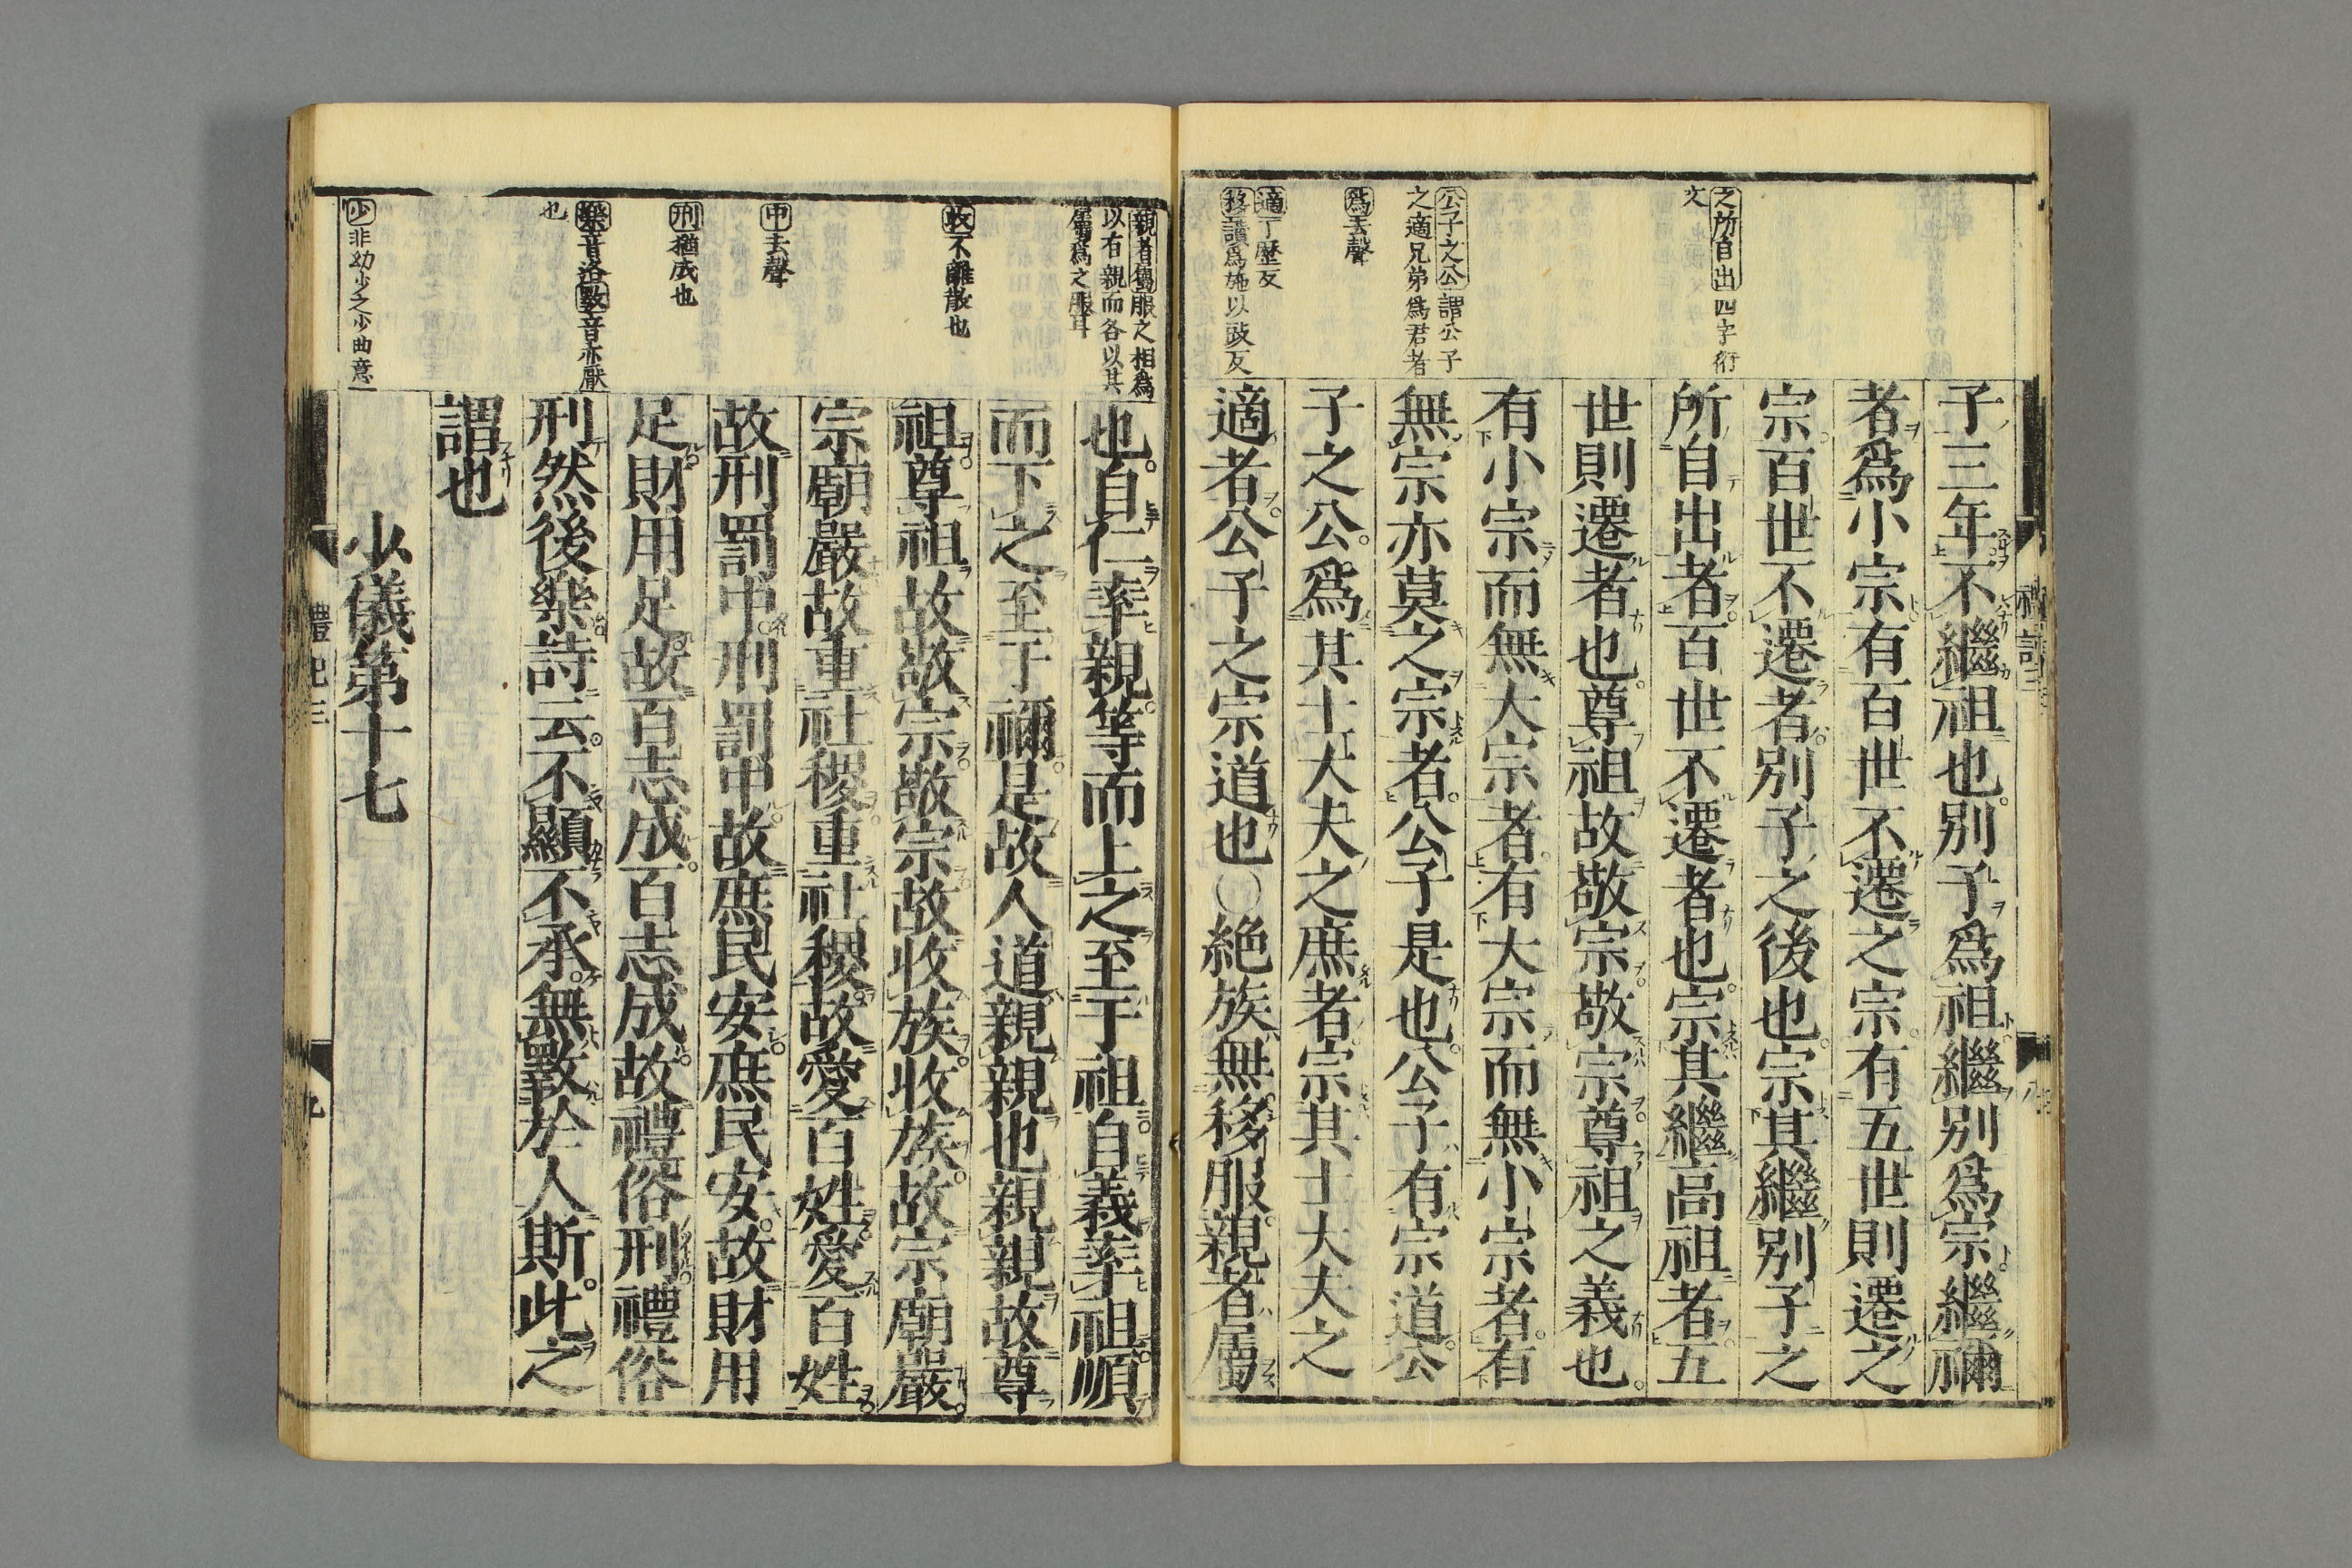 之所自出四字衍
文
公子之公謂公子
之適兄弟爲君者
爲去聲
適丁歷反
移讀爲施以豉反
子三年不繼祖也別子爲祖繼別爲宗繼禰
者爲小宗有百世不遷之宗有五世則遷之
宗百世不遷者別子之後也宗其繼別子之
所自出者百世不遷者也宗其繼高祖者五
世則遷者也尊祖故敬宗敬宗尊祖之義也
有小宗而無大宗者有大宗而無小宗者有
無宗亦莫之宗者公子是也公子有宗道公
子之公爲其士大夫之庶者宗其士大夫之
適者公子之宗道也〇絶族無移服親者屬
親者屬服之相爲
以有親而各以其
屬爲之服耳
收不離散也
中去聲
刑猶成也
樂音洛斁音亦厭
也
少非幼少之少曲意
也自仁率親等而上之至于祖自義率祖順
而下之至于禰是故人道親親也親親故尊
祖尊祖故敬宗敬宗故收族收族故宗廟嚴
宗廟嚴故重社稷重社稷故愛百姓愛百姓
故刑罰中刑罰中故庶民安庶民安故財用
足財用足故百志成百志成故禮俗刑禮俗
刑然後樂詩云不顯不承無斁於人斯此之
謂也
少儀第十七
禮記三
九